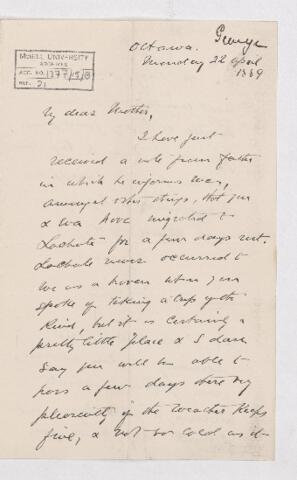 George
Ottawa.
Monday 22 April
1889
McGILL UNIVERSITY
ARCHIVES
ACC. NO. 1377/
REF. 21
My dear Mother,
I have just
received a note from father
in which he informs me,
amongst other things, that you
& Eva have migrated to
Lachute for a few days rest.
Lachute never occurred to
me as a haven when you
spoke of taking a trip of the
kind, but it is certainly a
pretty little place & I dare
say you will be able to
pass a few days there very
pleasantly if the weather keeps
fine, & not so cold as it